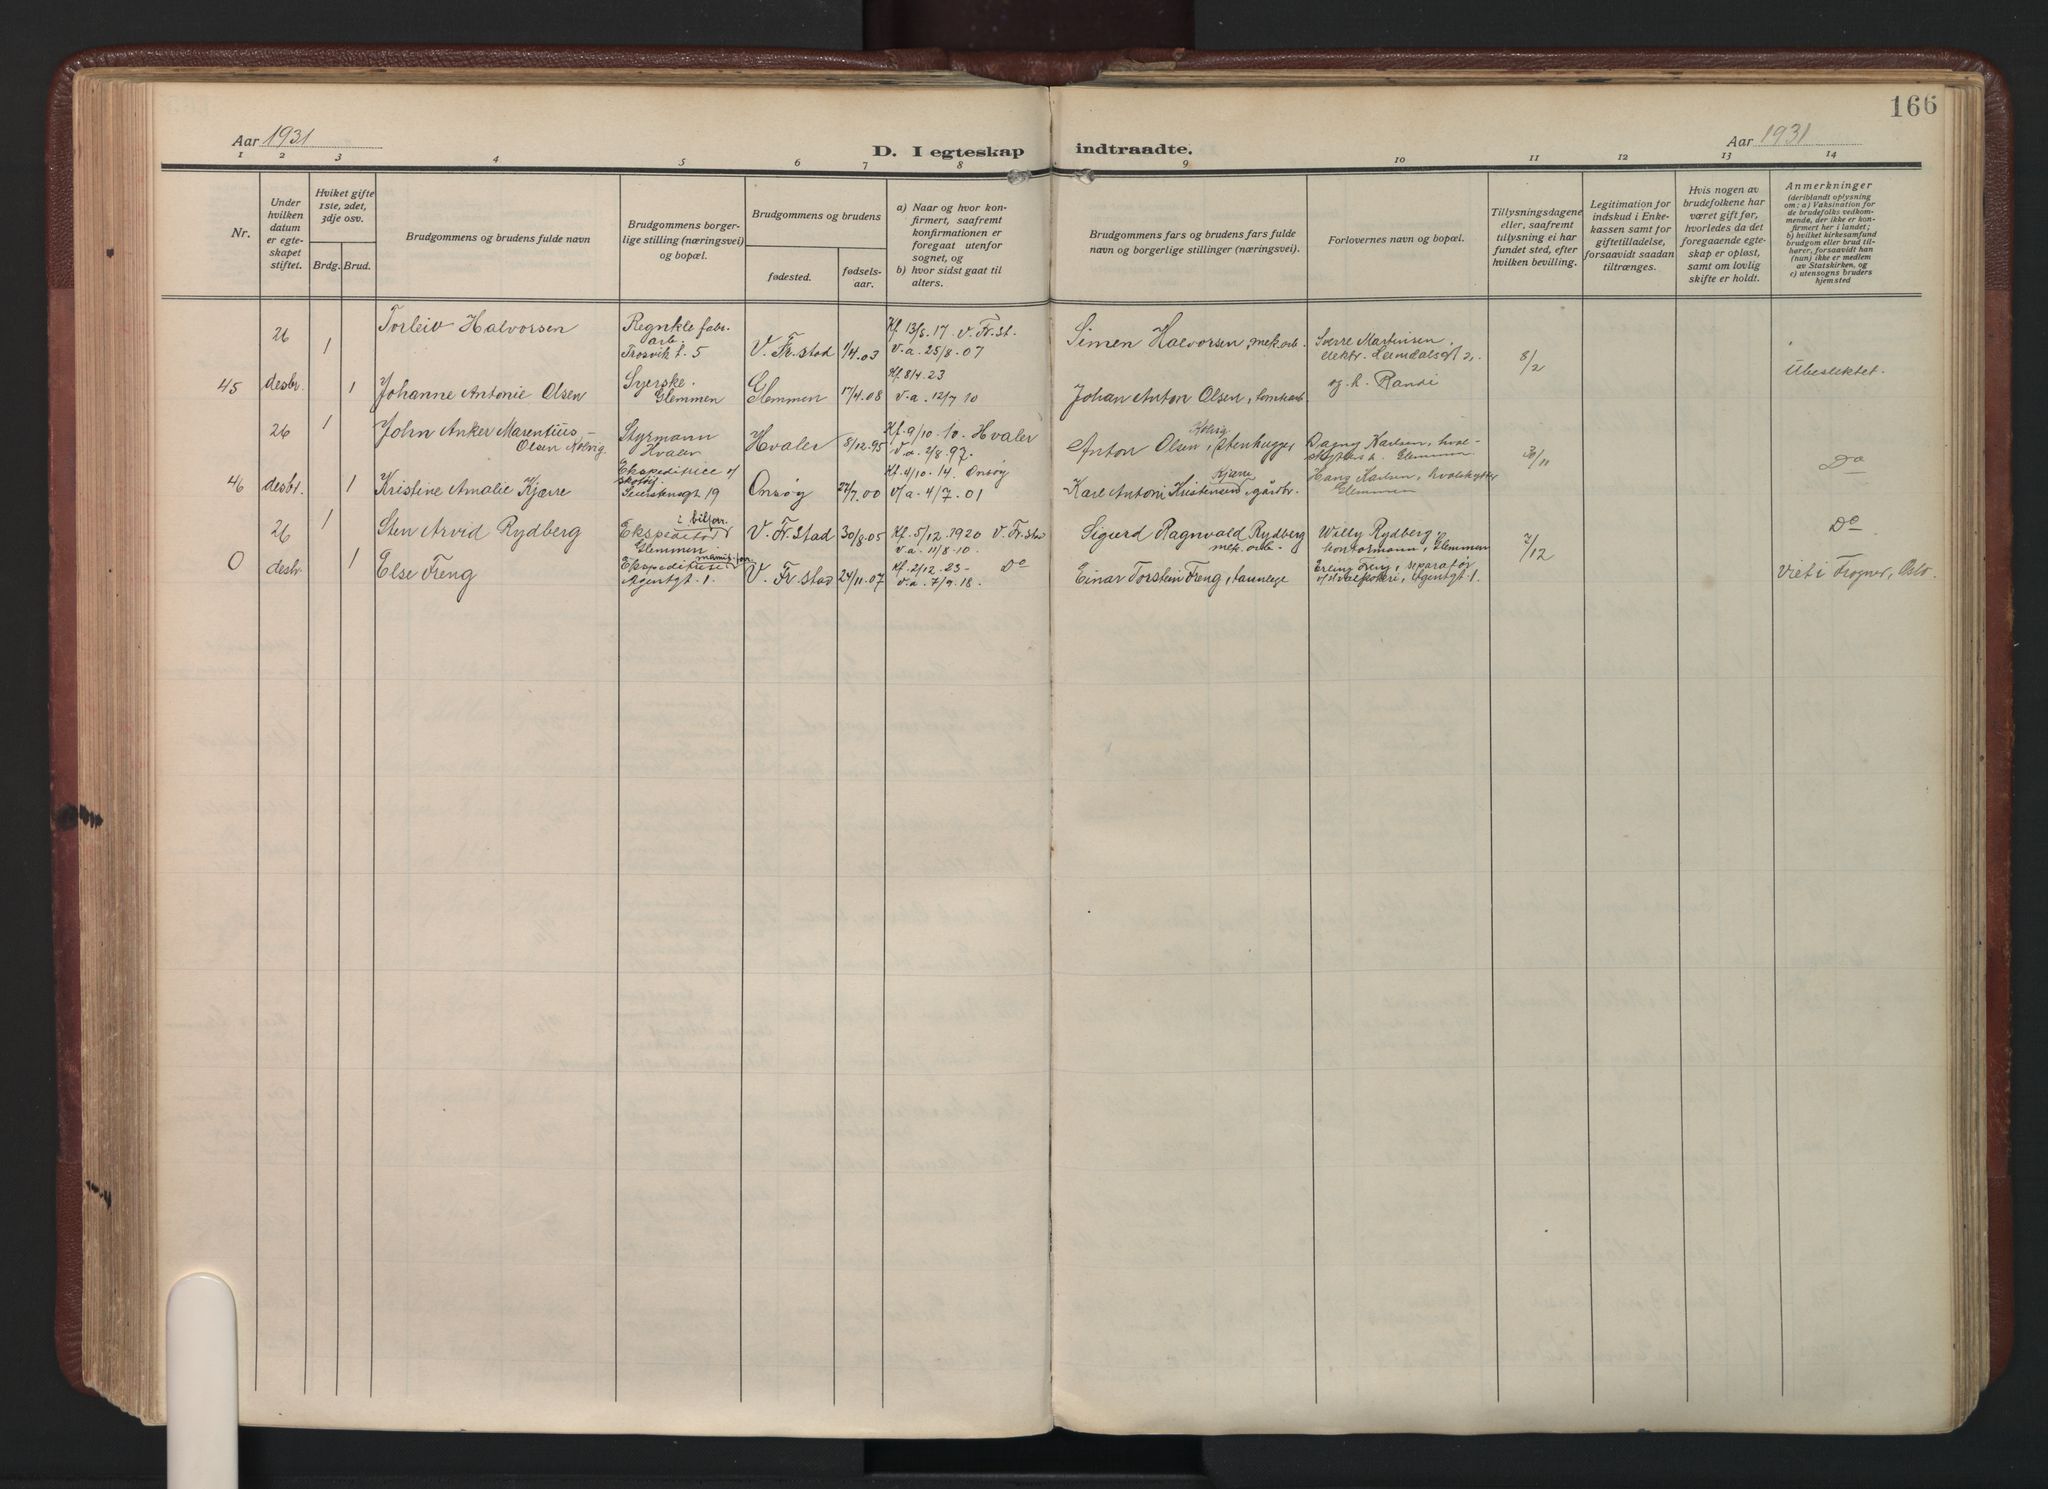 166
Aar 1931
D. I egteskap indtraadte.
Aar 1931
1 2 3 4 5 6 7 8 9 10 11 12 13 14
Nr.
Under hvilken datum er egteskapet stiftet.
Hviket gifte 1ste, 2det, 3dje osv.
Brdg. Brud.
Brudgommens og brudens fulde navn
Brudgommens borgerlige stilling (næringsvei) og bopæl.
Brudgommens og brudens
fødested.
fødselsaar.
a) Naar og hvor konfirmert, saafremt konfirmationen er foregaat utenfor sognet, og
b) hvor sidst gaat til alters.
Brudgommens fars og brudens fars fulde navn og borgerlige stillinger (næringsvei).
Forlovernes navn og bopæl.
Tillysningsdagene eller, saafremt tillysning ei har fundet sted, efter hvilken bevilling.
Legitimation for indskud i Enkekassen samt for giftetilladelse, forsaavidt saadan tiltrænges.
Hvis nogen av brudefolkene har været gift før, hvorledes da det foregaaende egteskap er opløst, samt om lovlig skifte er holdt.
Anmerkninger
(deriblandt oplysning om: a) Vaksination for de brudefolks vedkommende, der ikke er konfirmert her i landet; b) hvilket kirkesamfund brudgom eller brud tilhører, forsaavidt han (hun) ikke er medlem av Statskirken, og c) utensogns bruders hjemsted
26 1 Torleiv Halvorsen
arb.
Trosvik t. 5
V. Fr.stad 1/4.03
Kf. 13/5.17 V. Fr.st.
v.a. 25/8.07
Simen Halvorsen, mek.arb.
Sverre Martinsen,
8/2
45 desbr. 1 Johanne Antonie Olsen
Syerske
Glemmen
Glemmen 17/4.08
Kf. 8/4.23
v.a. 12/7 10
Johan Anton Olsen, tomtearb.
og h. Randi
Ubeslektet.
26 1 John Anker Marentius
Olsen Kolvig
Styrmann
Hvaler
Hvaler 8/12.95
Kf. 9/10.10. Hvaler
v.a. 2/8.97.
Anton Olsen Kolvig, stenhugger
Dagny Karlsen, Glemmen
30/11
46 desbr. 1 Kristine Amalie Kjærre
Onsøy 27/7.00
Kf. 4/10.14. Onsøy
v/a. 4/7.01
Karl Antoni Kristensen Kjærre, gårdbr.
Hans Karlsen, hvalskytter
Glemmen
Do
26 1 Sten Arvid Rydberg
Ekspeditør i bilforr.
Glemmen
V. Fr.stad 30/8.05
Kf. 5/12.1920 V. Fr.stad
v.a. 11/8.10.
Sigurd Ragnvald Rydberg
mek. arb.
Willy Rydberg,
kontormann, Glemmen
7/12
Do
0 desbr. 1 Else Freng
Agentgt. 1.
V. Fr.stad 24/11.07
Kf. 2/12.23 - Do
v.a. 7/9.18.
Einar Torstein Freng, tannlege
Erling Freng, Agentgt 1.
Viet i Frogner, Oslo.